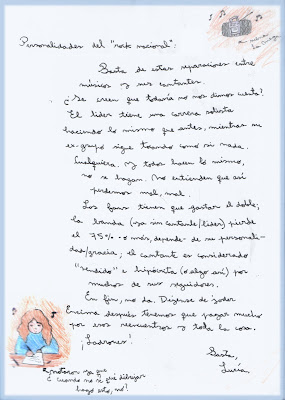 Personalidades del "rock nacional":
Basta de estas separaciones entre
músicos y sus cantantes.
¿Se creen que todavía no nos dimos cuenta?
El líder tiene una carrera solista
haciendo lo mismo que antes, mientras su
ex-grupo sigue tocando como si nada.
Cualquiera. Y todos hacen lo mismo,
no se hagan. No entienden que así
perdemos mal, mal.
Los fans tienen que gastar el doble;
la banda (ya sin cantante/líder) pierde
el 75% o más, depende de su personali-
dad/gracia; el cantante es considerado
"vendido" e hipócrita (o algo así) por
muchos de sus seguidores.
En fin, no da. Déjense de joder
Encima después tenemos que pagar mucho
por esos reencuentros y toda la cosa.
¡Ladrones!
Basta,
Lucía.
notaron ya que
cuando no sé qué dibujar
hago esto, no?